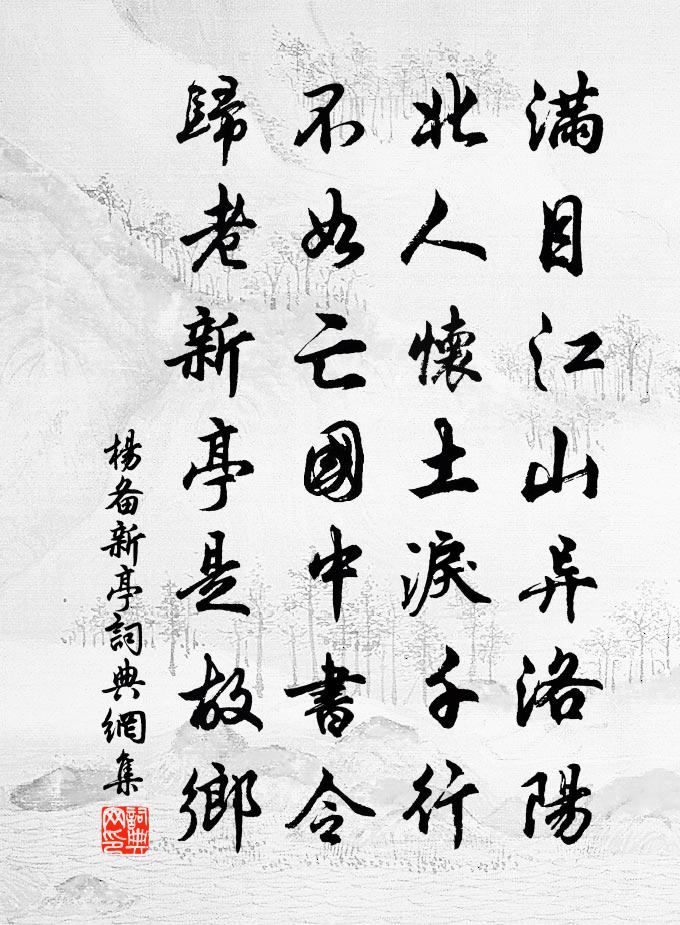 滿目江山异洛陽
北人懷土淚千行
不如亡國中書令
歸老新亭是故鄉
楊备新亭詞典網集
詞典網印